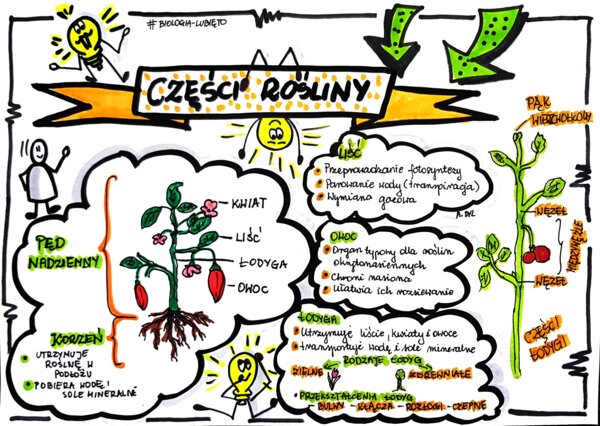 #BIOLOGIA-LUBIĘTO
CZĘŚCI ROŚLINY
PĘD
NADZIEMNY
KWIAT
LIŚĆ
ŁODYGA
OWOC
KORZEŃ
UTRZYMUJE
ROŚLINĘ W
PODŁOŻU
POBIERA WODĘ I
SOLE MINERALNE
LIŚĆ
Przeprowadzanie fotosyntezy
Parowanie wody (transpiracja)
Wymiana gazowa
OWOC
Organ typowy dla roślin
okrytonasiennych
Chroni nasiona
Ułatwia ich rozsiewanie
ŁODYGA
Utrzymuje liście, kwiaty i owoce
transportuje wodę i sole mineralne
RODZAJE ŁODYG
ZIELNE
ZDREWNIAŁE
PRZEKSZTAŁCENIA ŁODYG
- BULWY - KŁĄCZA - ROZŁOGI - CZEPNE
PĄK
WIERZCHOŁKOWY
WĘZEŁ
MIĘDZYWĘŹLE
WĘZEŁ
CZĘŚCI
ŁODYGI